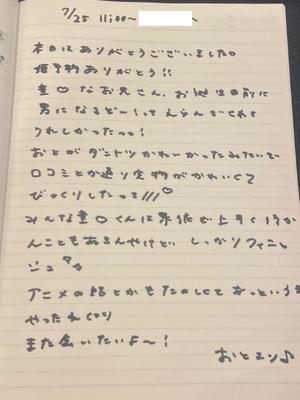 7/25 11:00~
本日はありがとうございました♡
姫予約ありがとう!!
童♡なお兄さん、お誕生日前に
男になるぞー!ってえらんでくれて
うれしかったっっ!
おとがダントツかわいかったみたいで
口コミとか通り実物がかわいくて
びっくりしたって///♡
みんな童♡くんは緊張で上手く行か
んこともあるんやけど、しっかりフィニッ
シュ
アニメの話とかもたのしくてあっという間
やったね
また会いたいよ～!
おとまり♪